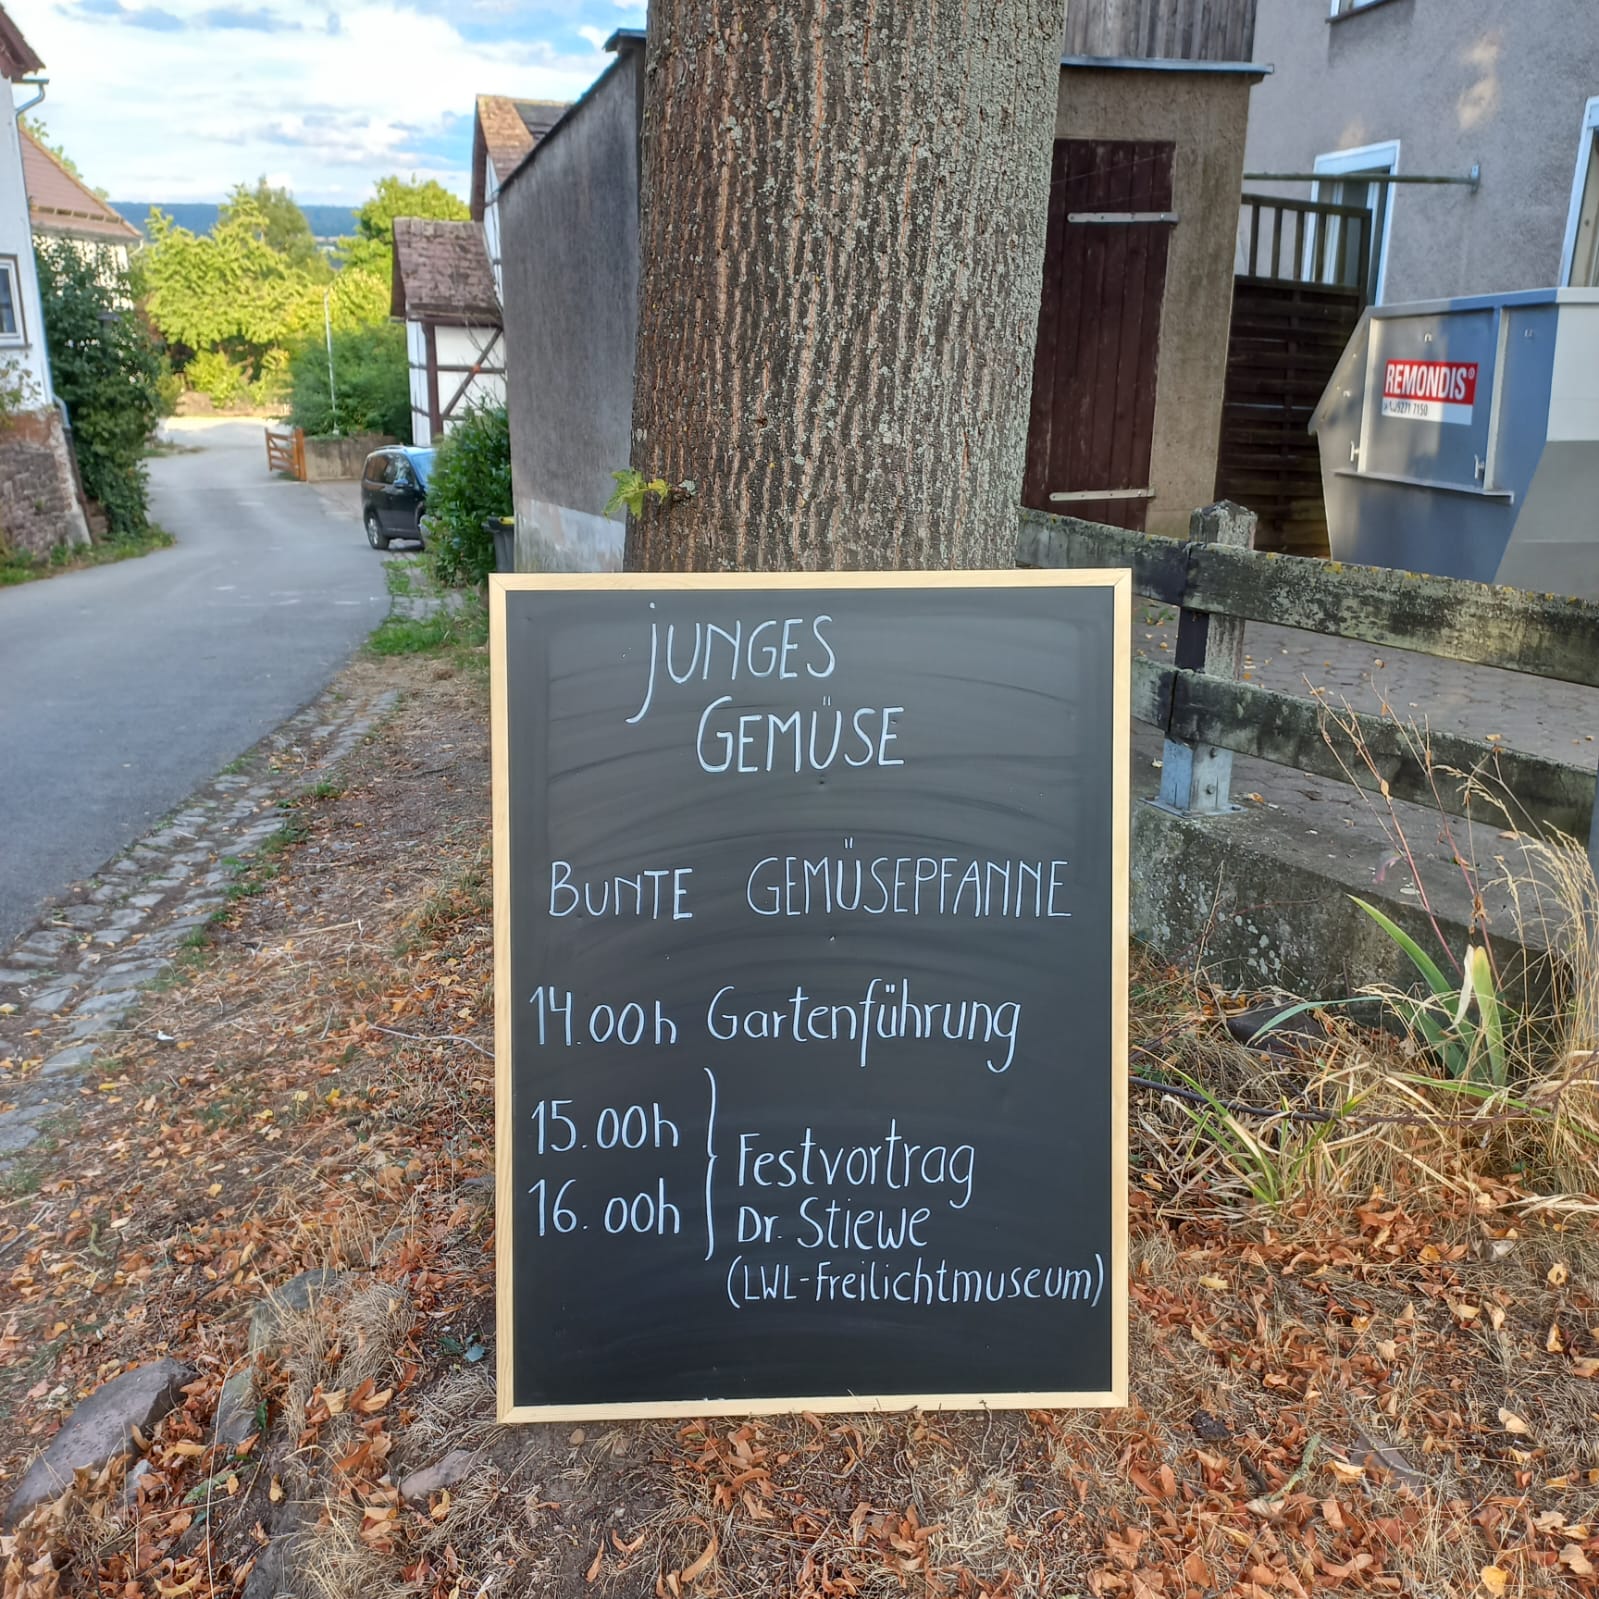 JUNGES
GEMÜSE
BUNTE GEMÜSEPFANNE
14.00h Gartenführung
15.00h
16.00h
Festvortrag
Dr. Stiewe
(LWL-Freilichtmuseum)
REMONDIS®